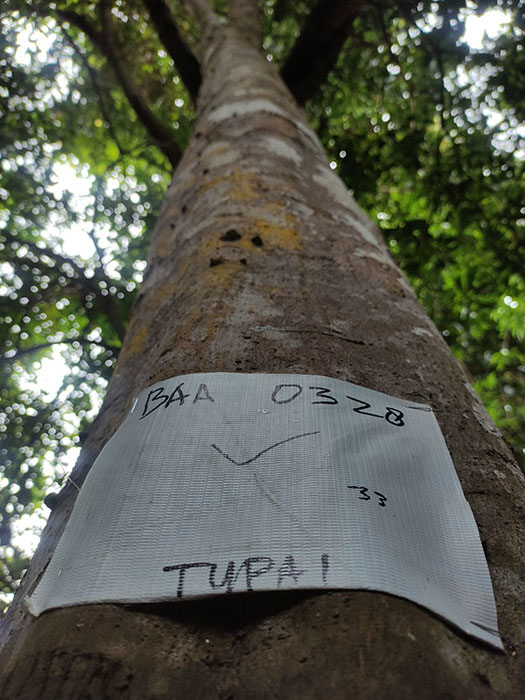 BAA 0328
33
TUPAI